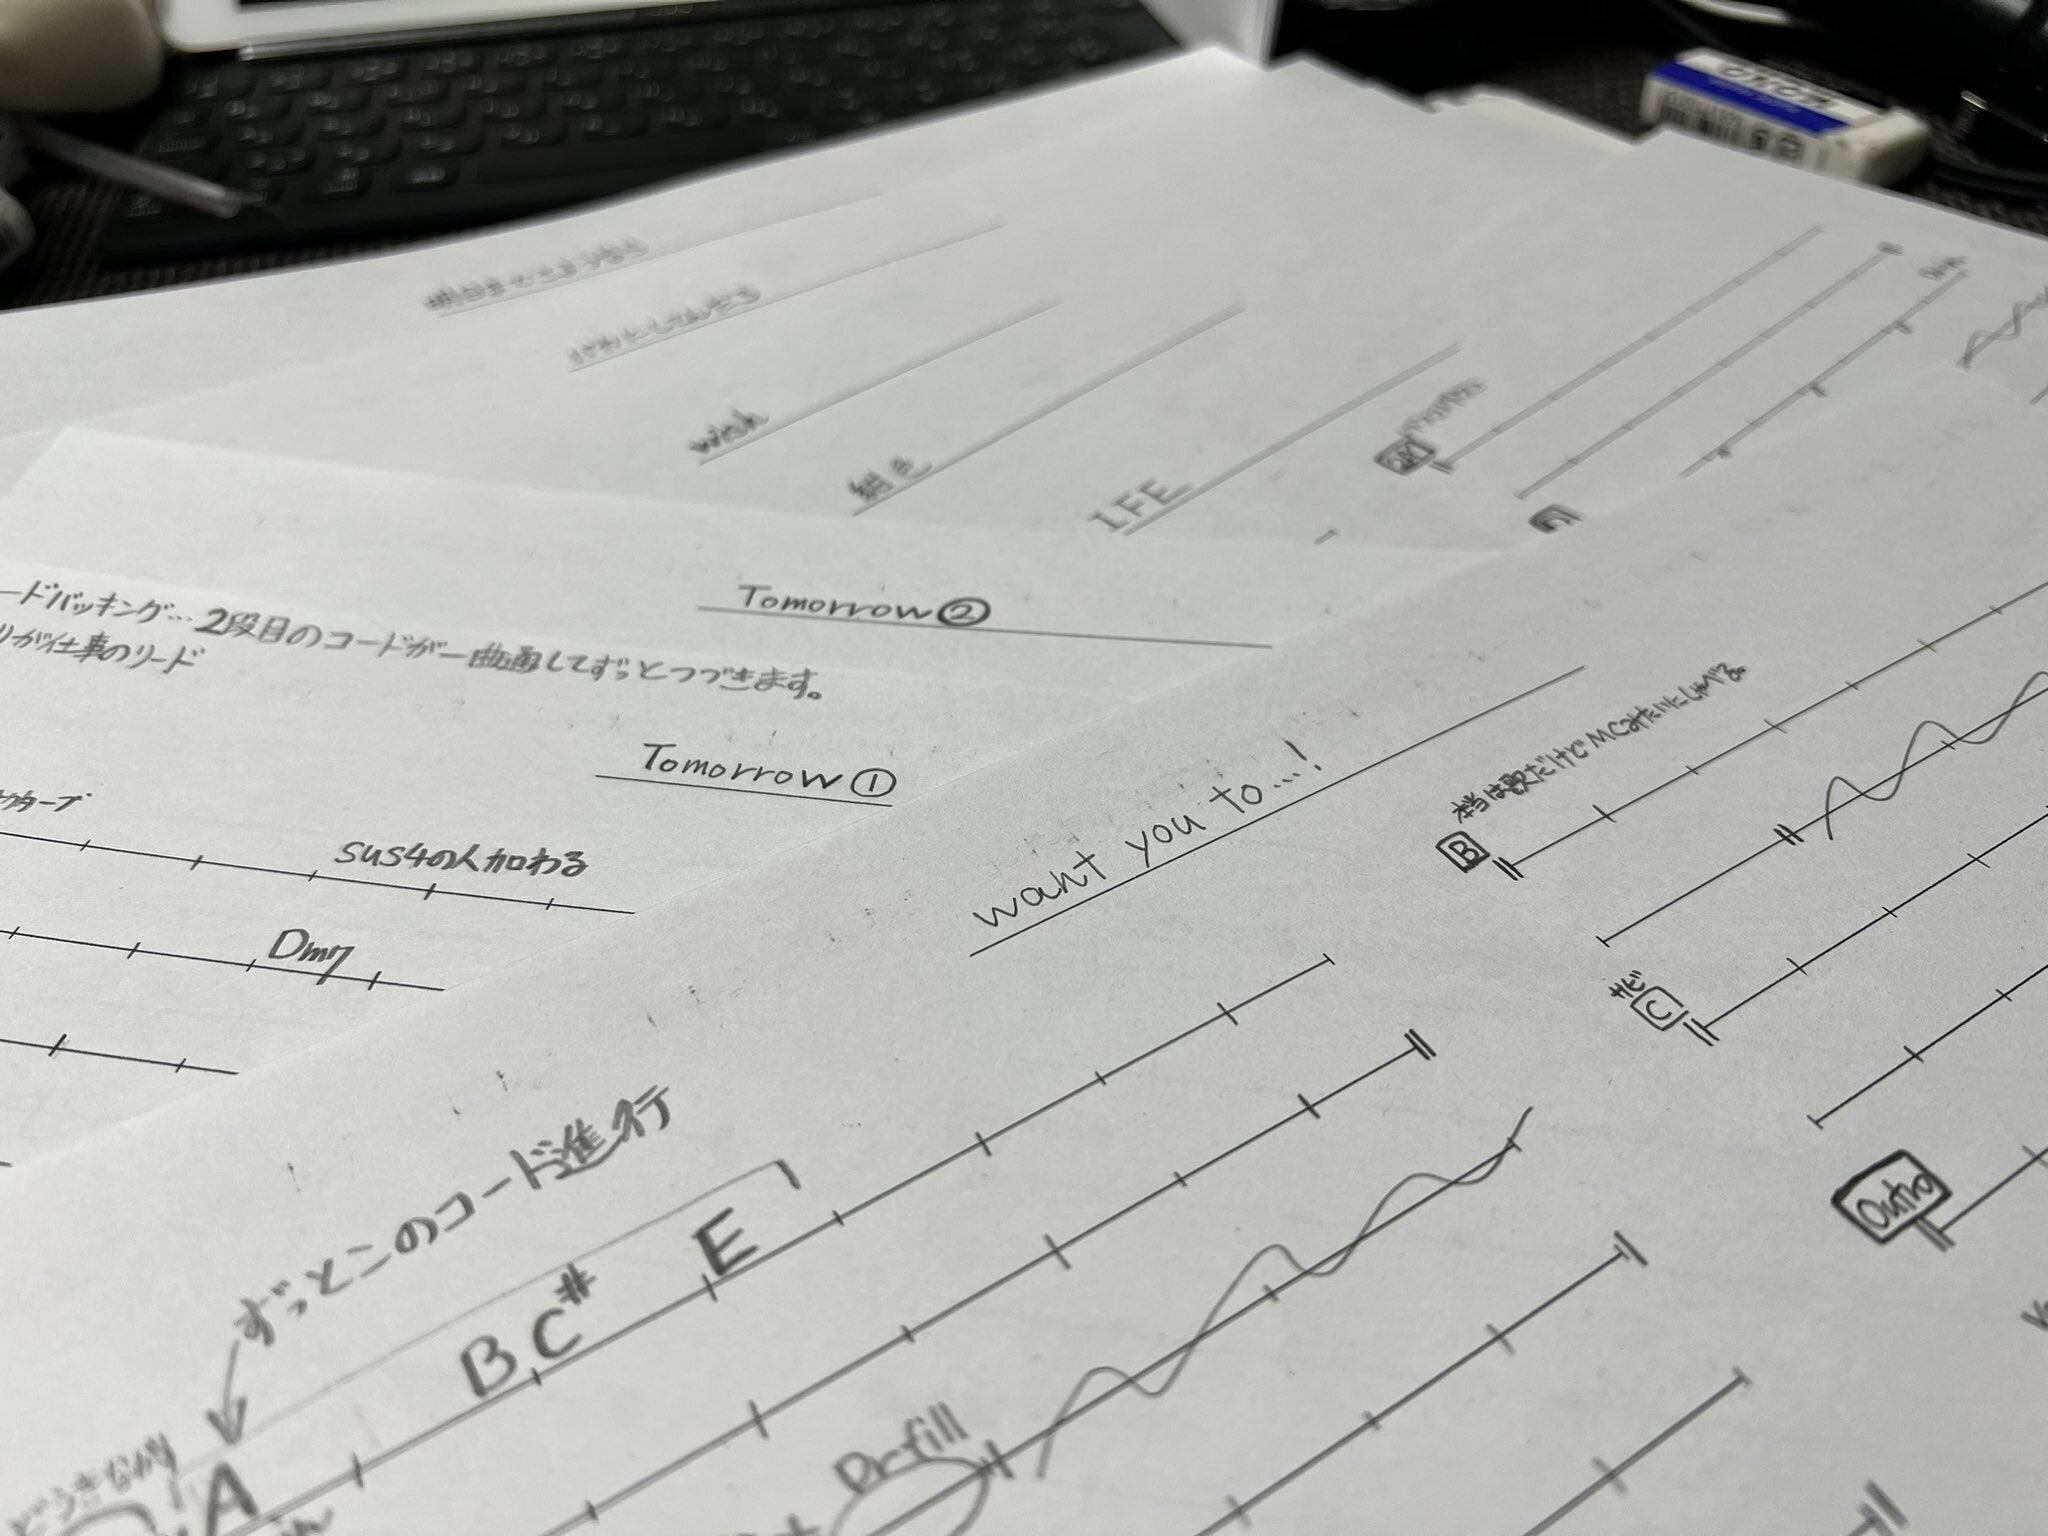 wish
紺色
LIFE
Tomorrow②
ードバッキング…2段目のコードが一曲通してずっとつづきます。
リが仕事のリード
Tomorrow①
sus4の人加わる
Dm7
want you to…!
本当は歌だけどMCみたいにしゃべる。
B
サビ
C
Outro
ずっとこのコード進行
A
B C#
E
Dr fill